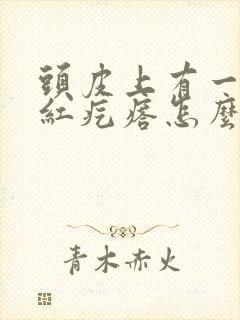 頭皮上有一
紅疙瘩怎麼
青木赤火